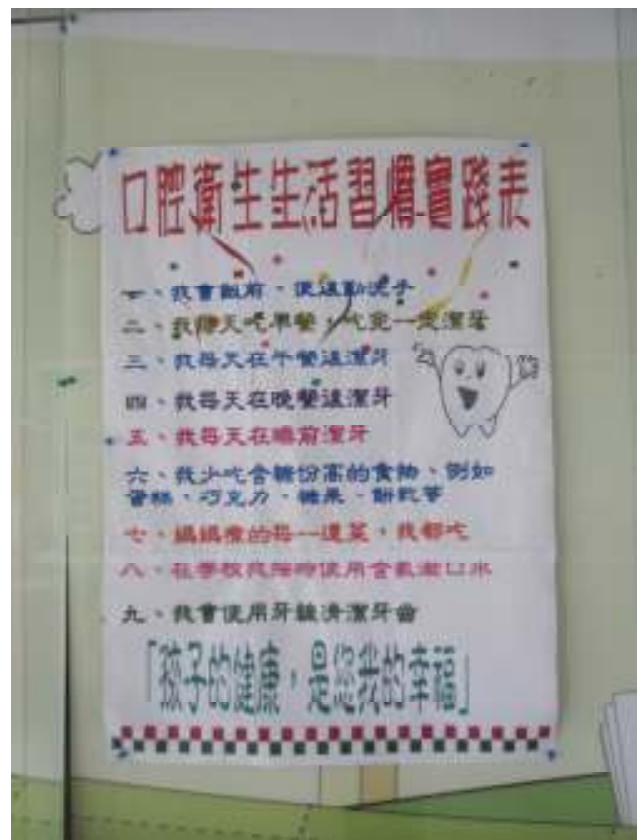 口腔衛生生活習慣實踐表
一、我會飯前、便後勤洗手
二、我每天吃早餐，吃完一定潔牙
三、我每天在午餐後潔牙
四、我每天在晚餐後潔牙
五、我每天在睡前潔牙
六、我少吃含糖份高的食物、例如
蛋糕、巧克力、糖果、餅乾等
七、媽媽煮的每一道菜，我都吃
八、在學校我按時使用含氟漱口水
九、我會使用牙線清潔牙齒
「孩子的健康，是您我的幸福」